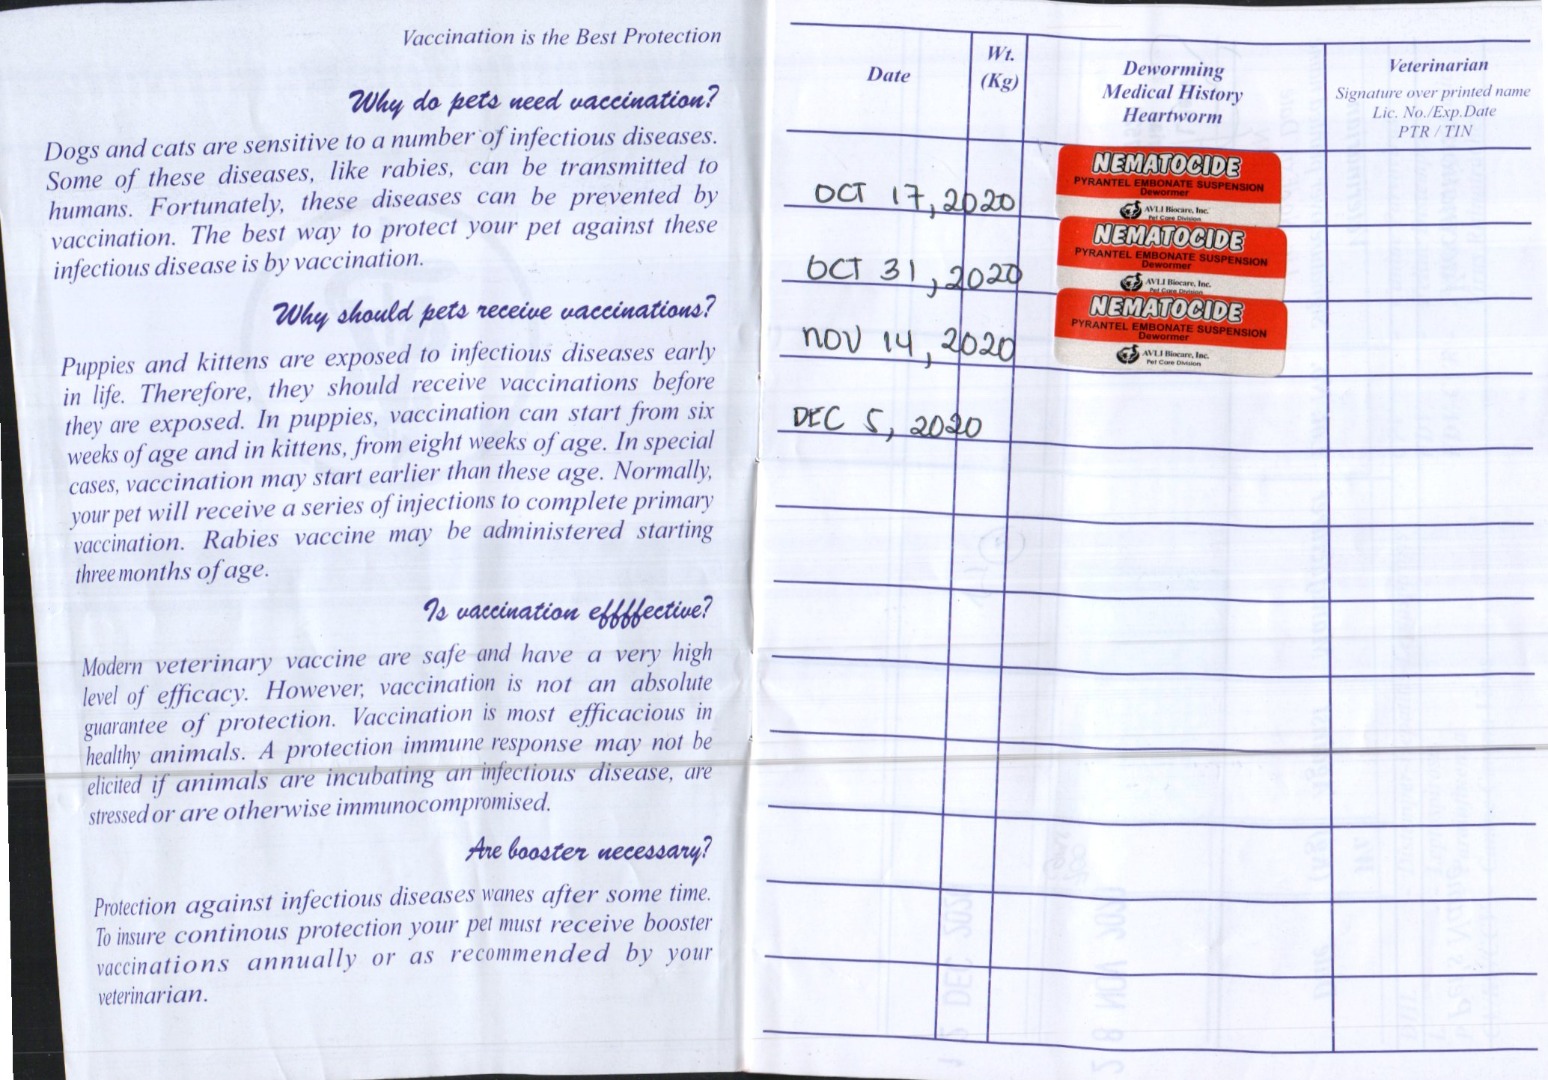 Vaccination is the Best Protection
Why do pets need vaccination?
Dogs and cats are sensitive to a number of infectious diseases.
Some of these diseases, like rabies, can be transmitted to
humans. Fortunately, these diseases can be prevented by
vaccination. The best way to protect your pet against these
infectious disease is by vaccination.
Why should pets receive vaccinations?
Puppies and kittens are exposed to infectious diseases early
in life. Therefore, they should receive vaccinations before
they are exposed. In puppies, vaccination can start from six
weeks of age and in kittens, from eight weeks of age. In special
cases, vaccination may start earlier than these age. Normally,
your pet will receive a series of injections to complete primary
vaccination. Rabies vaccine may be administered starting
three months of age.
Is vaccination effffective?
Modern veterinary vaccine are safe and have a very high
level of efficacy. However, vaccination is not an absolute
guarantee of protection. Vaccination is most efficacious in
healthy animals. A protection immune response may not be
elicited if animals are incubating an infectious disease, are
stressed or are otherwise immunocompromised.
Are booster necessary?
Protection against infectious diseases wanes after some time.
To insure continous protection your pet must receive booster
vaccinations annually or as recommended by your
veterinarian.
Date
Wt.
(Kg)
Deworming
Medical History
Heartworm
Veterinarian
Signature over printed name
Lic. No./Exp.Date
PTR / TIN
OCT 17, 2020
NEMATOCIDE
PYRANTEL EMBONATE SUSPENSION
Dewormer
AVLI Biocare, Inc.
Pet Care Division
OCT 31, 2020
NEMATOCIDE
PYRANTEL EMBONATE SUSPENSION
Dewormer
AVLI Biocare, Inc.
Pet Care Division
NOV 14, 2020
NEMATOCIDE
PYRANTEL EMBONATE SUSPENSION
Dewormer
AVLI Biocare, Inc.
Pet Care Division
DEC 5, 2020